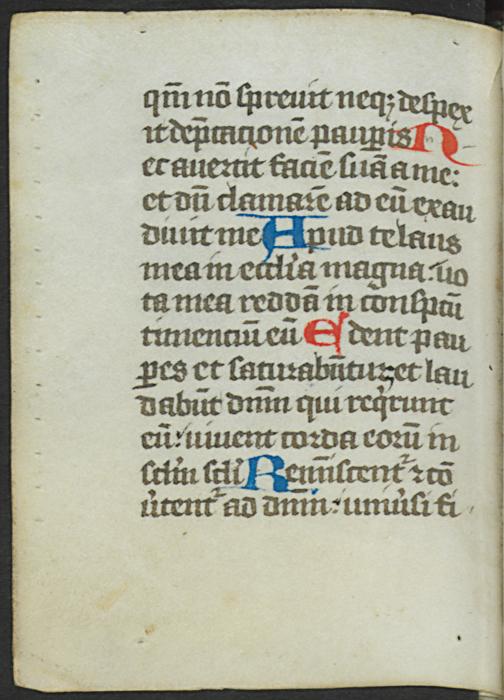 qm̄ nō spreuit neqꝫ despex
it dep̄cacionē paupis N
ec auertit faciē suā a me:
et dū clamarē ad eū exau
diuit me Apud te laus
mea in eccl'ia magna: uo
ta mea reddā in cōnsp̄tū
timenciū eū Edent pau
ꝑes et saturabūtur, et lau
dabūt dnm̄ qui reqͥrunt
eū: uiuent corda eorū in
sclm̄ scli Reminiscentᷣ ⁊ cō
u̾tentᷣ ad dnm̄: uniu̾si fi